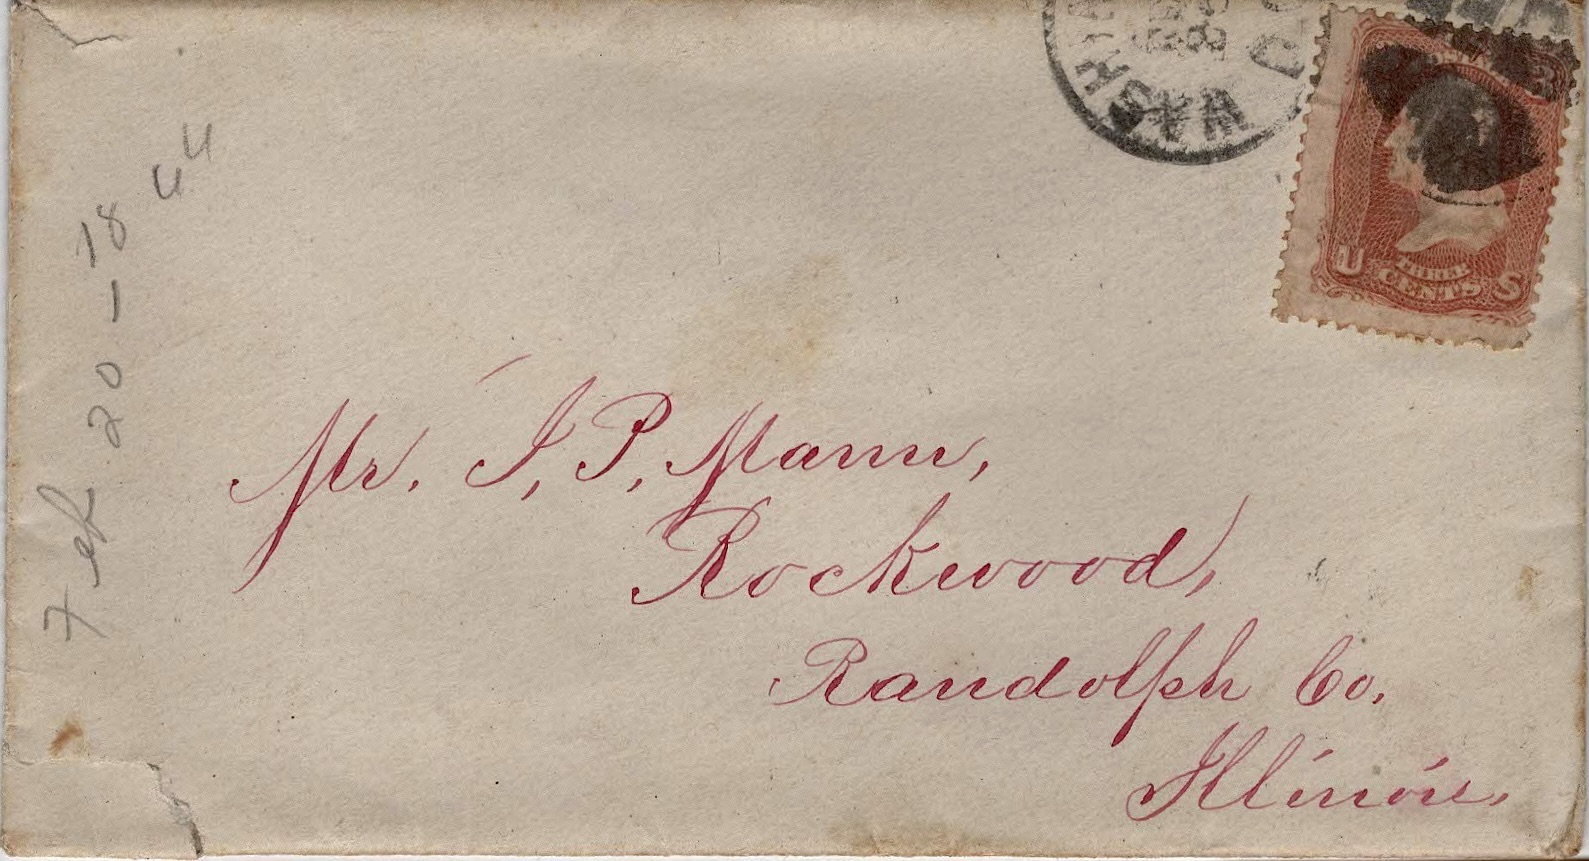 WASH
D.C.
U S
THREE
CENTS
Mr. I. P. Mann,
Rockwood,
Randolph Co.
Illinois.
Feb 20 - 18